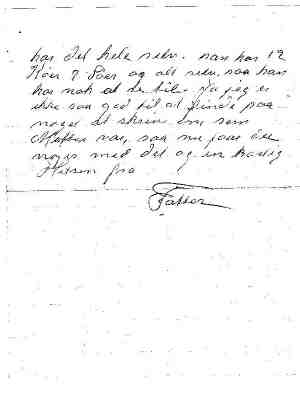 har det hele selv. han har 12
Köer 7 Saer og alt selv, saa han
har nok at se til. Ja jeg er
ikke saa god til at finde paa
noget at skrive om som
Mutter var, saa nu faar I
nojes med det og en kærlig
Hilsen fra
Fatter